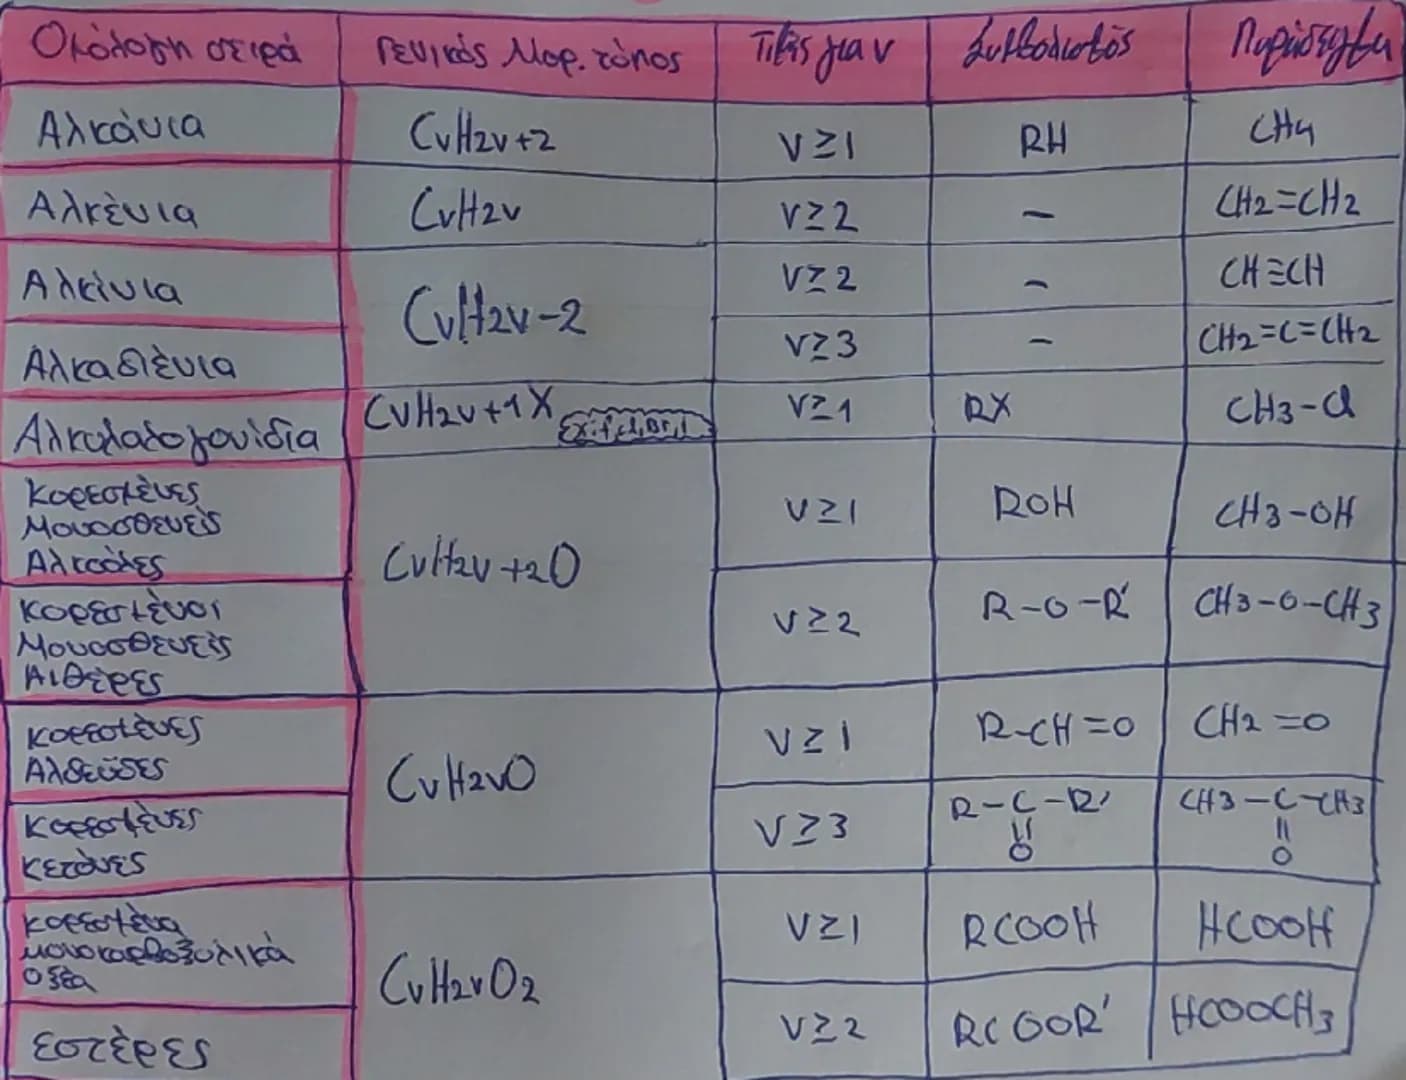 Ομόλογη σειρά Γενικός Μορ. τύπος Τιμές για ν Συμβολισμός
Αλκάνια CνH2ν+2 ν≥1 RH CH4
Αλκένια CνH2ν ν≥2 - CH2=CH2
Αλκίνια CνH2ν-2 ν≥2 - CH≡CH
Αλκαδιένια ν≥3 - CH2=C=CH2
Αλκυλαλογονίδια CνH2ν+1X ν≥1 RX CH3-Cl
Κορεσμένες
Μονοσθενείς
Αλκοόλες
CνH2ν+2O ν≥1 ROH CH3-OH
Κορεσμένοι
Μονοσθενείς
Αιθέρες
ν≥2 R-O-R' CH3-O-CH3
Κορεσμένες
Αλδεΰδες
CνH2νO ν≥1 R-CH=O CH2=O
Κορεσμένες
Κετόνες
ν≥3 R-C-R' CH3-C-CH3
||
O
||
O
Κορεσμένα
μονοκαρβοξυλικά
οξέα
CνH2νO2 ν≥1 RCOOH HCOOH
Εστέρες ν≥2 RCOOR' HCOOCH3